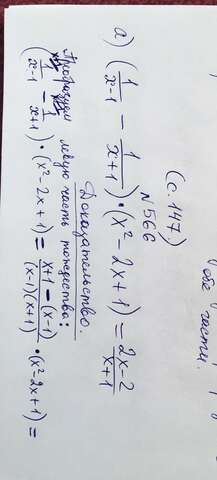 обе части.
(с. 147.)
№566
а) (1/(x-1) - 1/(x+1)) · (x² - 2x + 1) = (2x-2)/(x+1)
Доказательство.
Преобразуем левую часть тождества:
(1/(x-1) - 1/(x+1)) · (x² - 2x + 1) = (x+1-(x-1))/((x-1)(x+1)) · (x² - 2x + 1) =